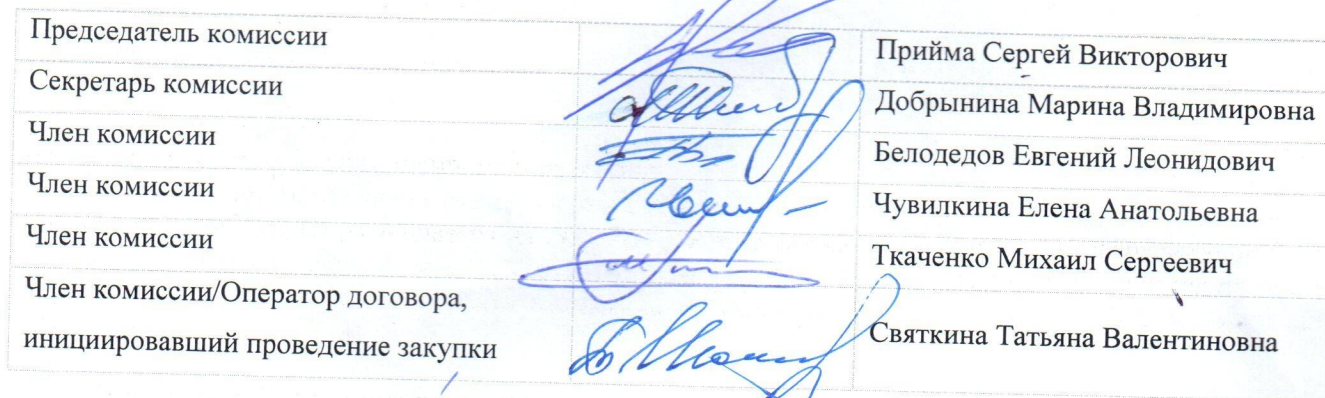 Председатель комиссии Прийма Сергей Викторович
Секретарь комиссии Добрынина Марина Владимировна
Член комиссии Белодедов Евгений Леонидович
Член комиссии Чувилкина Елена Анатольевна
Член комиссии Ткаченко Михаил Сергеевич
Член комиссии/Оператор договора,
инициировавший проведение закупки Святкина Татьяна Валентиновна